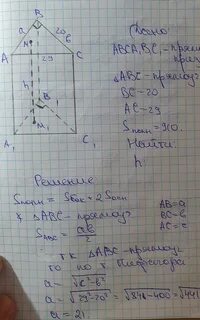 B
a
20
b
N
A
29
C
h
B₁
M
A₁
C₁
Дано
ABCA₁B₁C₁ - прямая
△ABC - прямоуг
BC - 20
AC - 29
Sполн - 910.
Найти
h.
Решение
Sполн = Sбок + 2Sосн
△ABC - прямоуг
AB = a
BC = b
AC = c
S△ABC = ab/2
т.к △ABC - прямоуг
то по т. Пифагора
a = √c²-b²
a = √29²-20² = √841-400 = √441
a = 21.